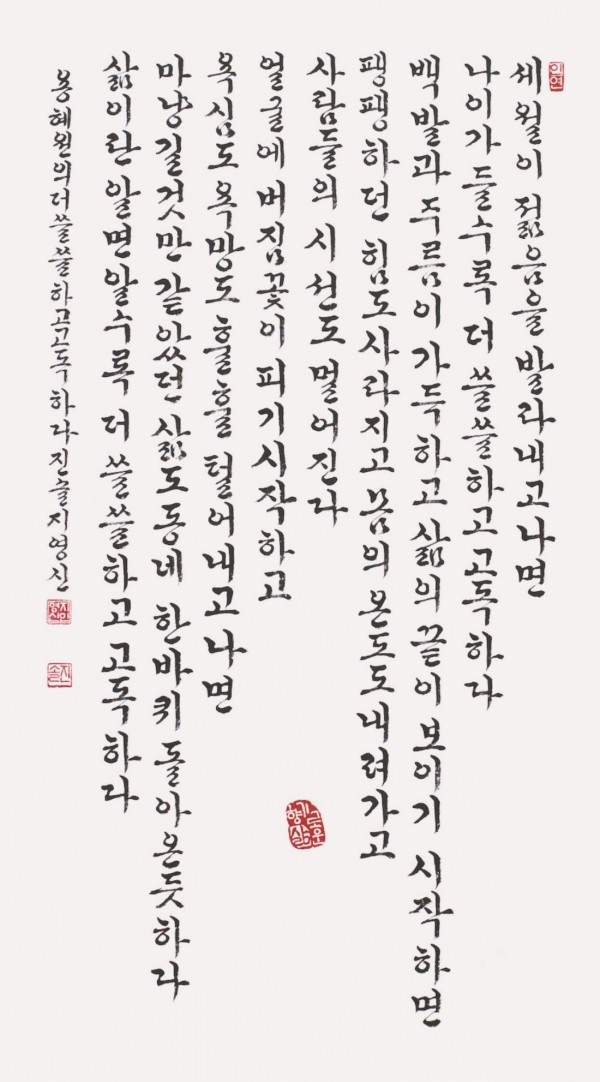 세월이 젊음을 발라내고나면
나이가 들수록 더 쓸쓸하고 고독하다
백발과 주름이 가득하고 삶의 끝이 보이기 시작하면
팽팽하던 힘도 사라지고 몸의 온도도 내려가고
사람들의 시선도 멀어진다
얼굴에 버짐꽃이 피기시작하고
욕심도 욕망도 훌훌 털어내고나면
마냥길것만 같았던 삶도 동네 한바퀴 돌아온듯하다
삶이란 알면알수록 더 쓸쓸하고 고독하다
용혜원의 더 쓸쓸하고 고독하다 진솔 지영신
진솔